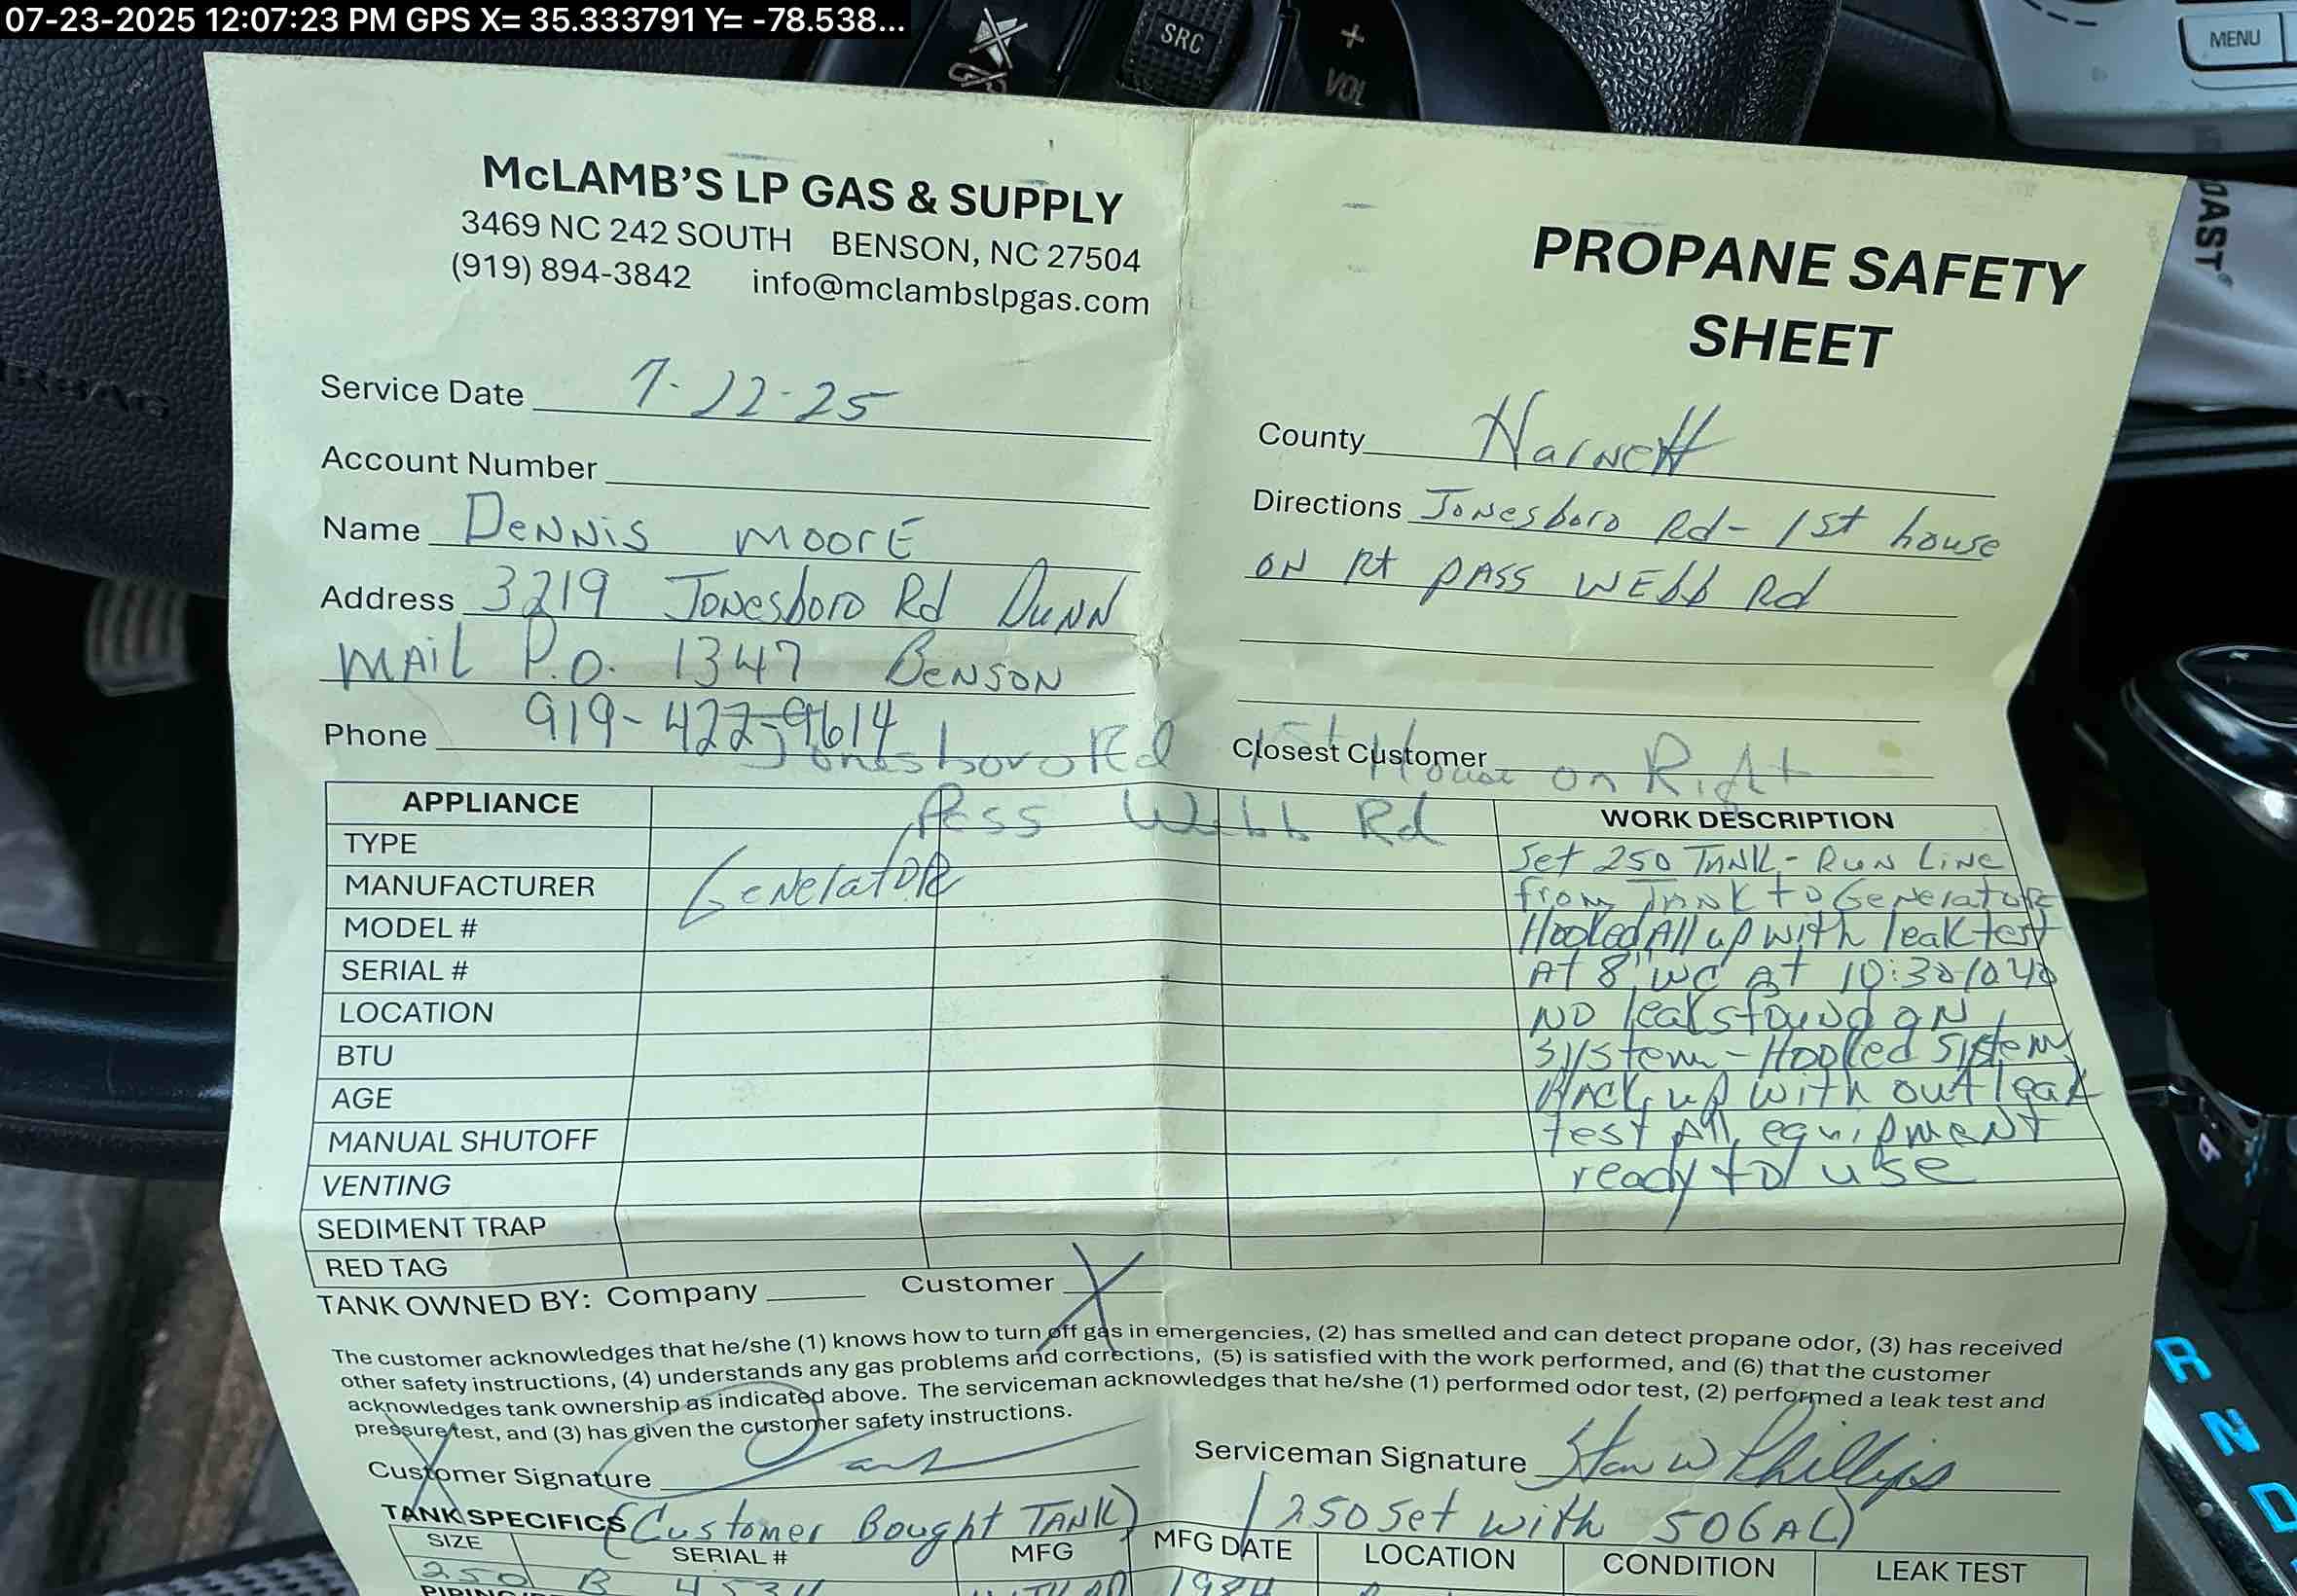 07-23-2025 12:07:23 PM GPS X= 35.333791 Y= -78.538...
SRC
+
VOL
MENU
McLAMB'S LP GAS & SUPPLY
3469 NC 242 SOUTH BENSON, NC 27504
(919) 894-3842 info@mclambslpgas.com
PROPANE SAFETY
SHEET
Service Date 7-22-25
Account Number
Name Dennis Moore
Address 3219 Jonesboro Rd Dunn
Mail P.O. 1347 Benson
Phone 919-422-9614
County Harnett
Directions Jonesboro Rd- 1st house
on Rt pass Webb Rd
Closest Customer
Jonesboro Rd 1st House on Right
Pass Webb Rd
APPLIANCE
TYPE
MANUFACTURER
MODEL #
SERIAL #
LOCATION
BTU
AGE
MANUAL SHUTOFF
VENTING
SEDIMENT TRAP
RED TAG
Generator
WORK DESCRIPTION
Set 250 Tank - Run Line
from Tank to Generator
Hooked All up with leak test
At 8" WC At 10:30-10:40
No leaks found on
System - Hooked System
Back up with out leak
test All equipment
ready to use
TANK OWNED BY: Company Customer X
The customer acknowledges that he/she (1) knows how to turn off gas in emergencies, (2) has smelled and can detect propane odor, (3) has received
other safety instructions, (4) understands any gas problems and corrections, (5) is satisfied with the work performed, and (6) that the customer
acknowledges tank ownership as indicated above. The serviceman acknowledges that he/she (1) performed odor test, (2) performed a leak test and
pressure test, and (3) has given the customer safety instructions.
X
Customer Signature
Serviceman Signature Stan W Phillips
TANK SPECIFICS (Customer Bought TANK) (250 Set with 50GAL)
SIZE SERIAL # MFG MFG DATE LOCATION CONDITION LEAK TEST
250 B 1984
R
N
D